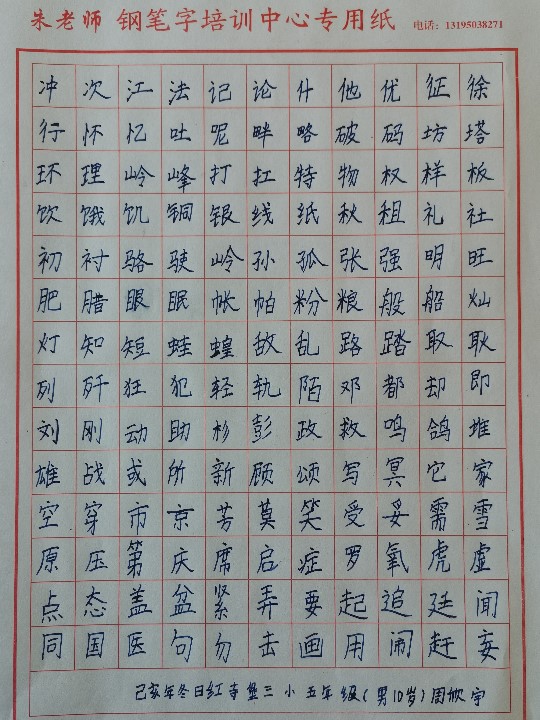 朱老师 钢笔字培训中心专用纸 电话：13195038271
冲次江法记论什他优征徐
行怀忆吐呢畔略破码坊塔
环理岭峰打扛特物权样板
饮饿饥铜银线纸秋租礼社
初衬骆驶岭孙孤张强明旺
肥腊眼眠帐帕粉粮般船灿
灯知短蛙蝗敌乱路踏取耿
列歼狂犯轻轨陌邓都却即
刘刚动助杉彭政救鸣鸽堆
雄战或所新顾颂写冥它家
空穿市京芳莫笑受妥需雪
原压第庆席启症罗氧虎虚
点态盖盆紧弄要起追廷闻
同国医句勿击画用闹赶妄
己亥年冬日红寺堡三小五年级(男10岁)周 字